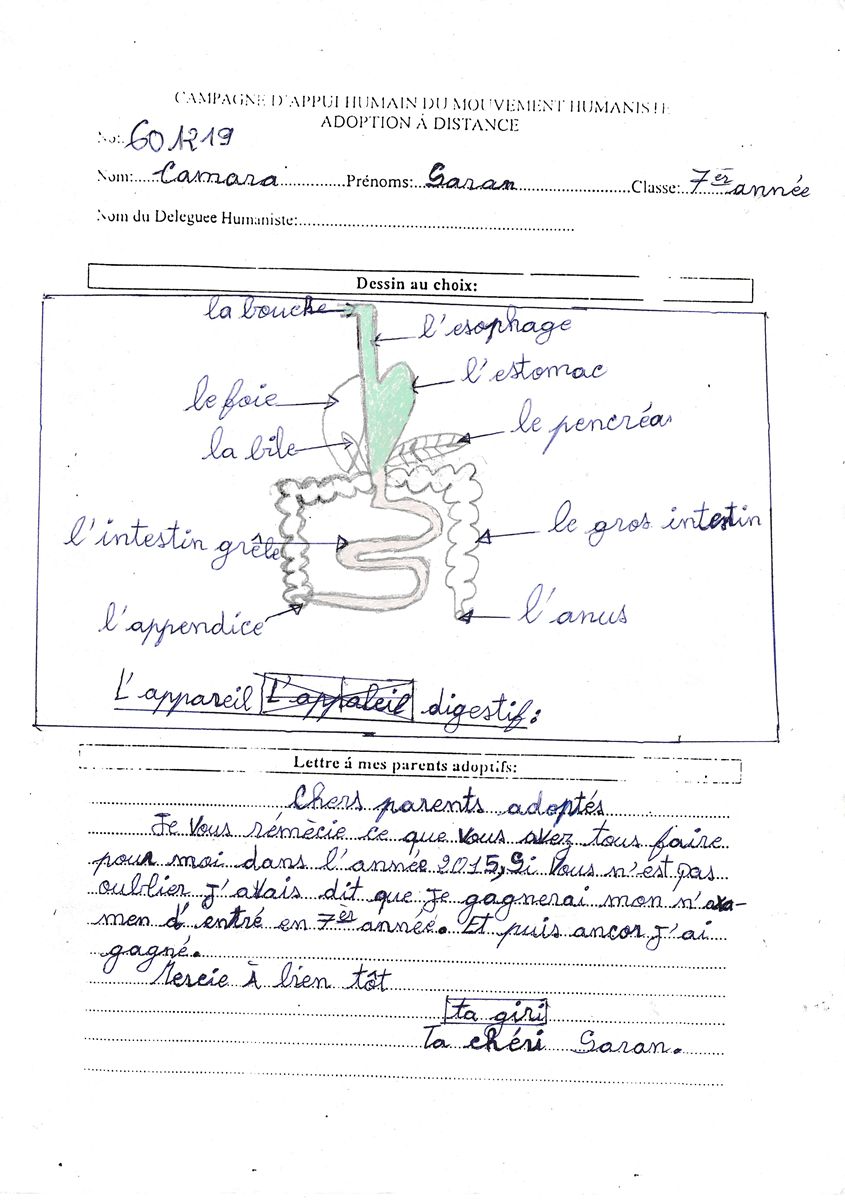 CAMPAGNE D'APPUI HUMAIN DU MOUVEMENT HUMANISTE
ADOPTION Á DISTANCE
No: 601219
Nom: Camara Prénoms: Saran Classe: 7èr année
Nom du Deleguee Humaniste:
Dessin au choix:
la bouche
l'esophage
l'estomac
le foie
le pencréas
la bile
l'intestin grêle
le gros intestin
l'appendice
l'anus
L'appareil L'appaleil digestif:
Lettre á mes parents adoptifs:
Chers parents adoptés
Je Vous rémècie ce que vous avez tous faire
pour moi dans l'année 2015, Si Vous n'est pas
oublier J'avais dit que Je gagnerai mon n'axa-
men d'entré en 7èr année. Et puis ancor J'ai
gagné.
Mercie à bien tôt
ta giri
Ta chéri Saran.